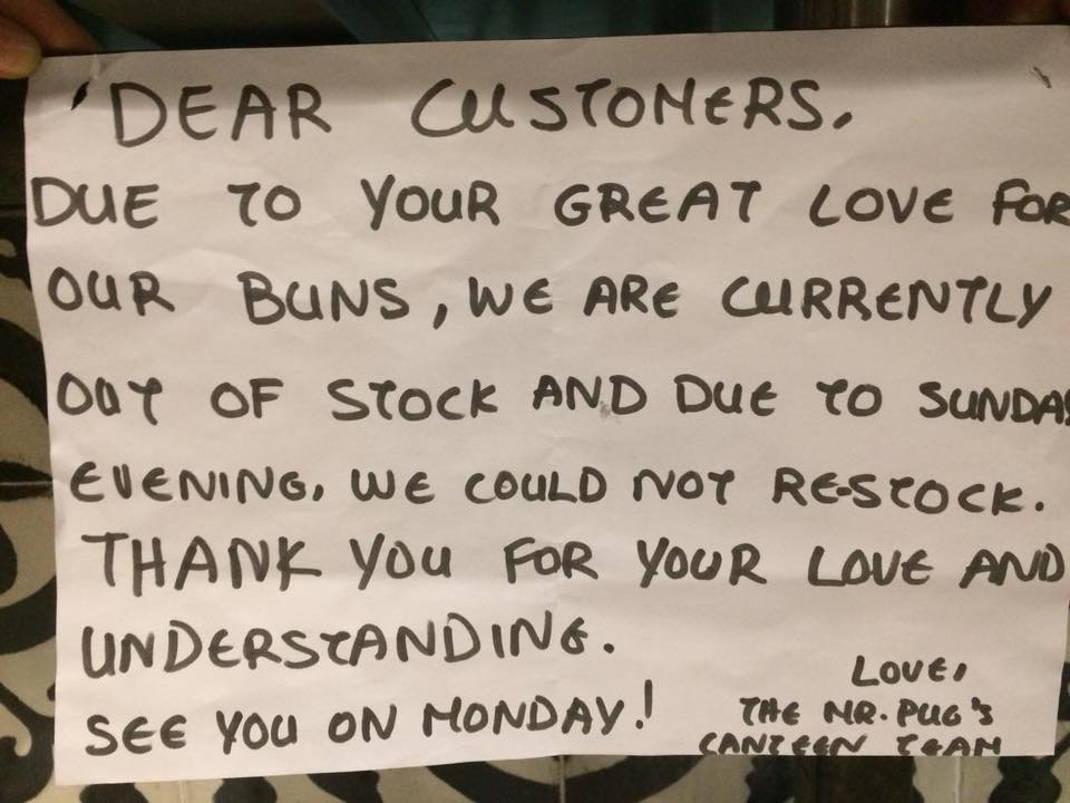 DEAR CUSTOMERS.
DUE TO YOUR GREAT LOVE FOR
OUR BUNS, WE ARE CURRENTLY
OUT OF STOCK AND DUE TO SUNDAY
EVENING, WE COULD NOT RE-STOCK.
THANK YOU FOR YOUR LOVE AND
UNDERSTANDING.
SEE YOU ON MONDAY!
LOVE,
THE MR. PUG'S
CANTEEN TEAM